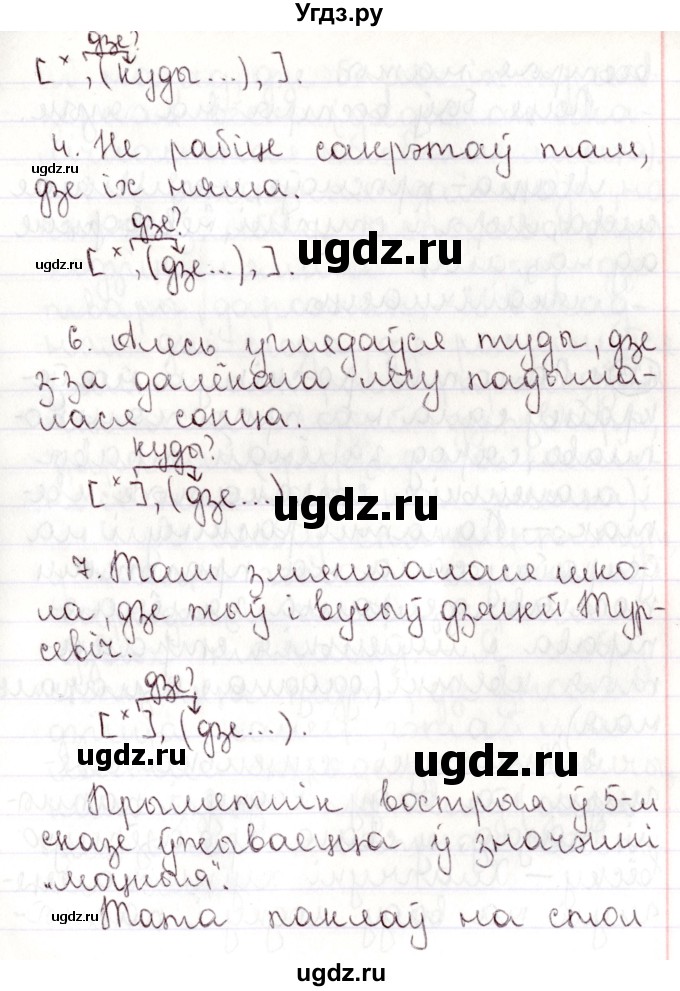 Угдз.ру
дзе?
[ ˣ , (куды...), ].
4. Не рабіце сакрэтаў там,
дзе іх няма.
дзе?
ugdz.ru [ ˣ , (дзе...), ]. ugdz.ru
6. Алесь углядаўся туды, дзе
з-за далёкага лесу падыма-
лася сонца.
куды?
[ ˣ ], (дзе...) ugdz.ru
7. Там змяшчалася шко-
ла, дзе жыў і вучыў дзяцей Тур-
севіч.
дзе?
[ ˣ ], (дзе...).
ugdz.ru ugdz.ru
Прыметнік вострыя ў 5-м
сказе ўжываецца ў значэнні
„моцныя".
ugdz.ru
Тата паклаў на стол
ugdz.ru
ugdz.ru